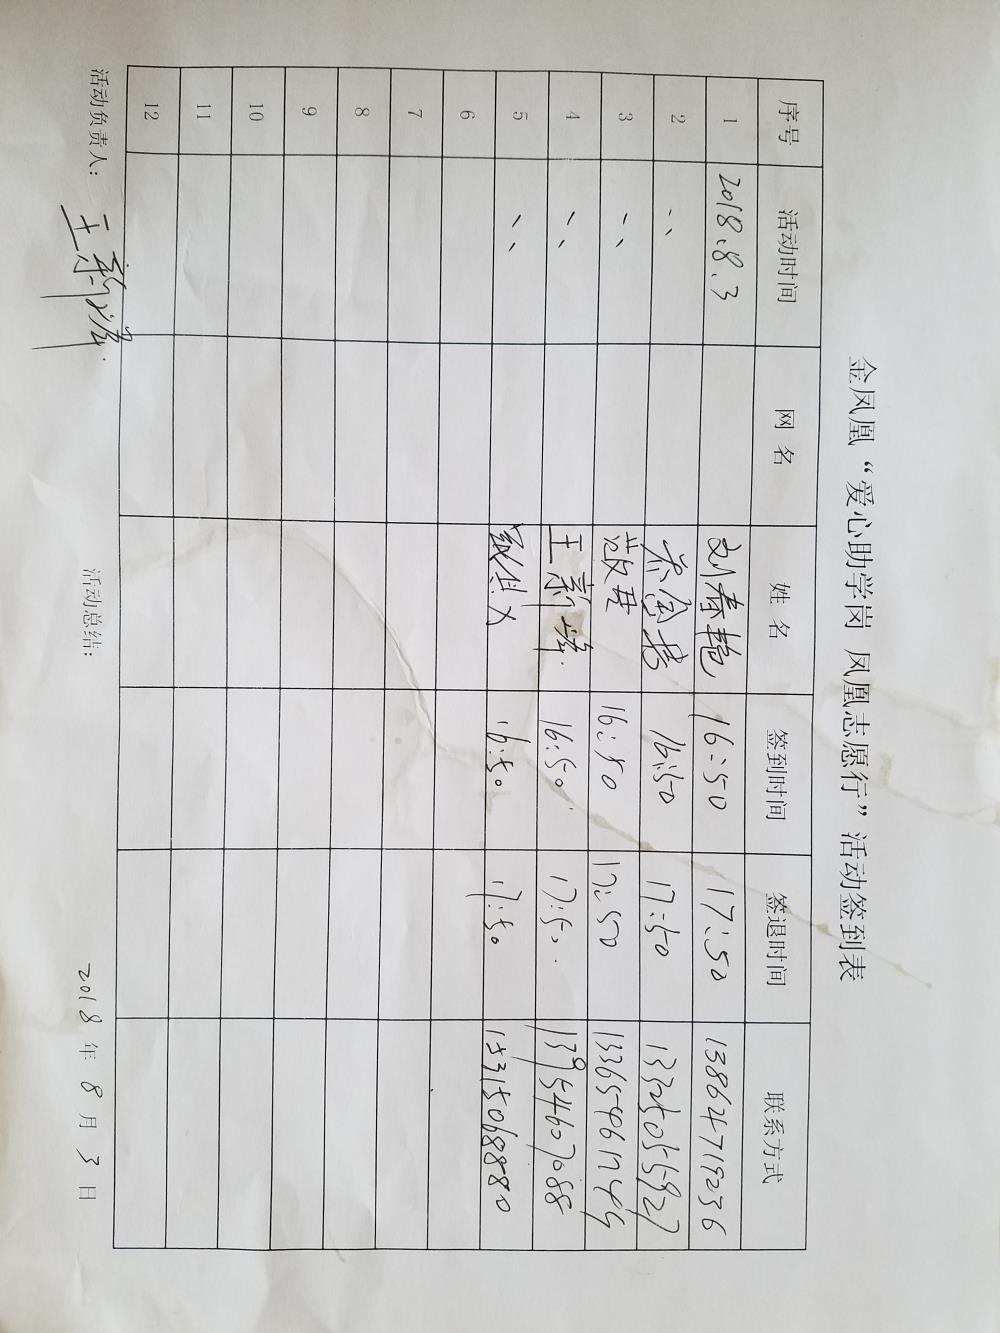 金凤凰“爱心助学岗 凤凰志愿行”活动签到表
序号 活动时间 网 名 姓 名 签到时间 签退时间 联系方式
1 2018.8.3 刘春艳 16:50 17:50 13864719236
2 、、 16:50 17:50 13325055927
3 、、 16:50 17:50
4 、、 王新 16:50 17:50 13954607088
5 、、 16:50 17:50 15315068880
6
7
8
9
10
11
12
活动负责人: 王新 活动总结: 2018 年 8 月 3 日